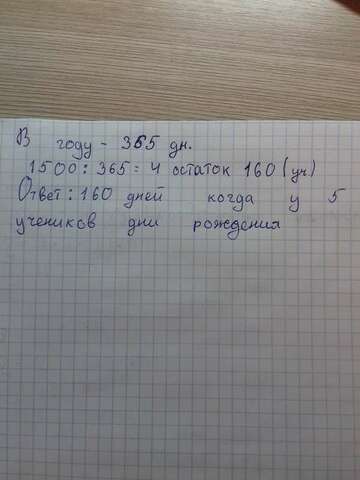 В году - 365 дн.
1500 : 365 = 4 остаток 160 (уч)
Ответ: 160 дней когда у 5
учеников дни рождения